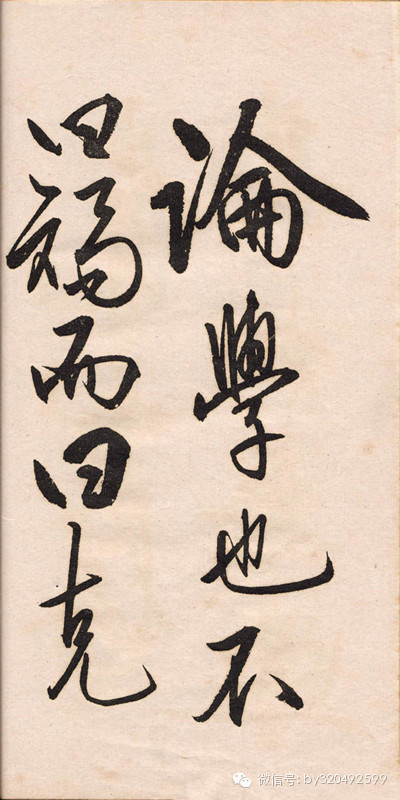 論學也不
曰而曰克
微信号: by320492599